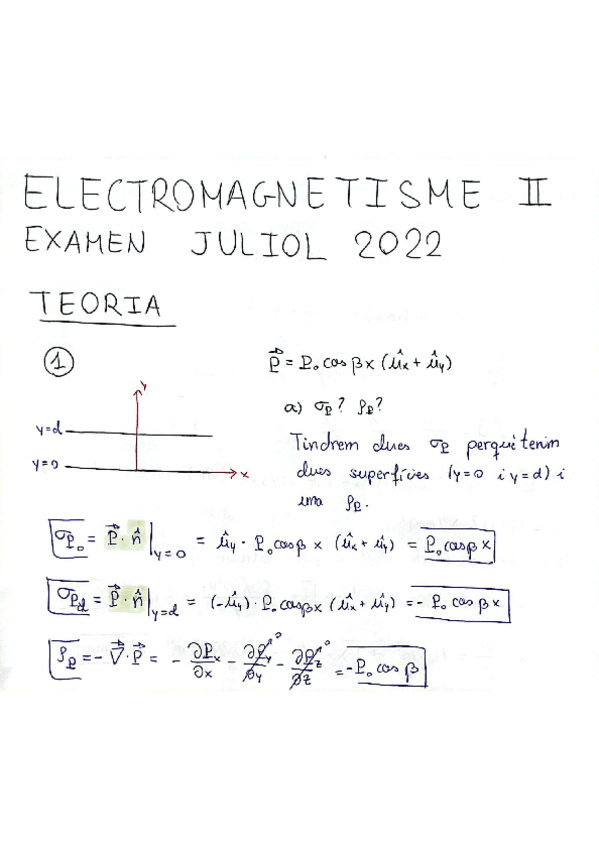 ELECTROMAGNETISME II
EXAMEN JULIOL 2022
TEORIA
1
y
y=d
y=0
x
P⃗ = P₀ cos βx (ûx + ûy)
a) σP? ρP?
Tindrem dues σP perquè tenim
dues superfícies (y=0 i y=d) i
una ρP.
σP₀ = P⃗ · n̂ |y=0 = ûy · P₀ cos β x (ûx + ûy) = P₀ cos β x
σPd = P⃗ · n̂ |y=d = (-ûy) · P₀ cos βx (ûx + ûy) = - P₀ cos β x
ρP = - ∇⃗ · P⃗ = - ∂Px/∂x - ∂Py/∂y⁰ - ∂Pz/∂z⁰ = - P₀ cos β